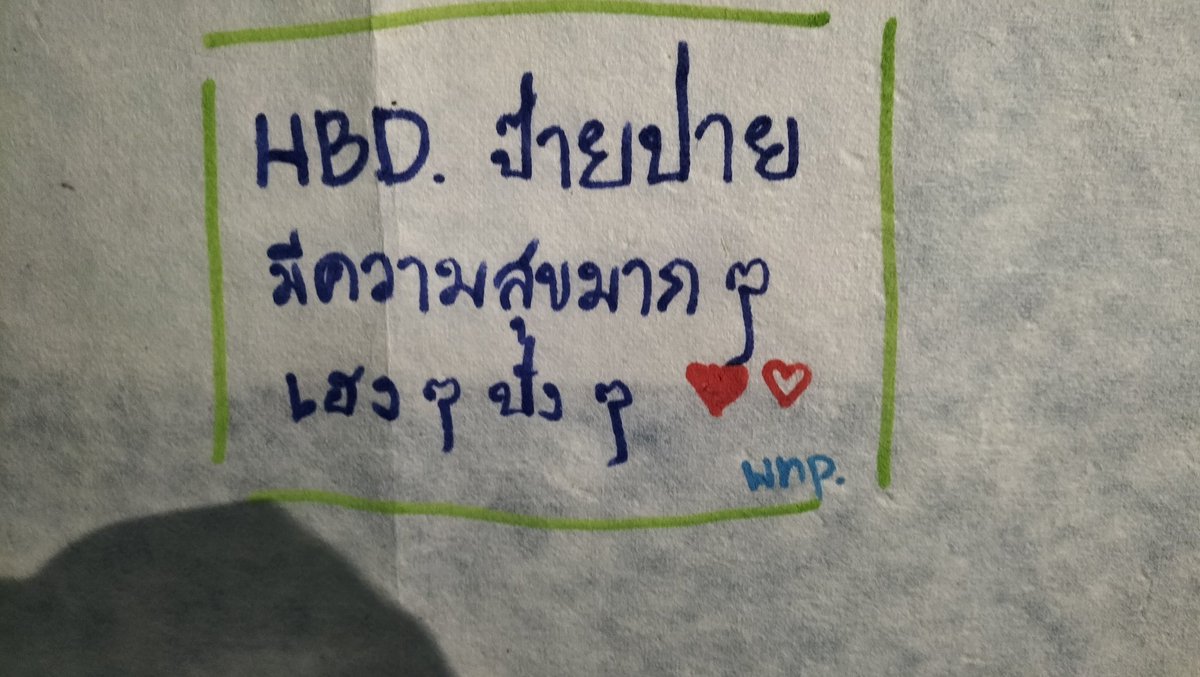 HBD. ป๊ายปาย
มีความสุขมาก ๆ
เฮง ๆ ปัง ๆ
wnp.